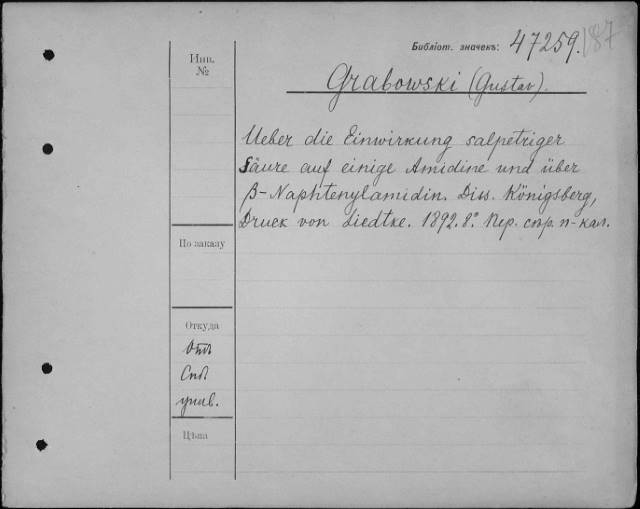 Библіот. значекъ: 47259. 187
Инв.
№
Grabowski (Gustav).
Ueber die Einwirkung salpetriger
Säure auf einige Amidine und über
β-Naphtenylamidin. Diss. Königsberg,
Druck von Liedtke. 1892. 8°. Пер. сопр. п-кал.
По заказу
Откуда
Отъ
Спб
унив.
Цѣна